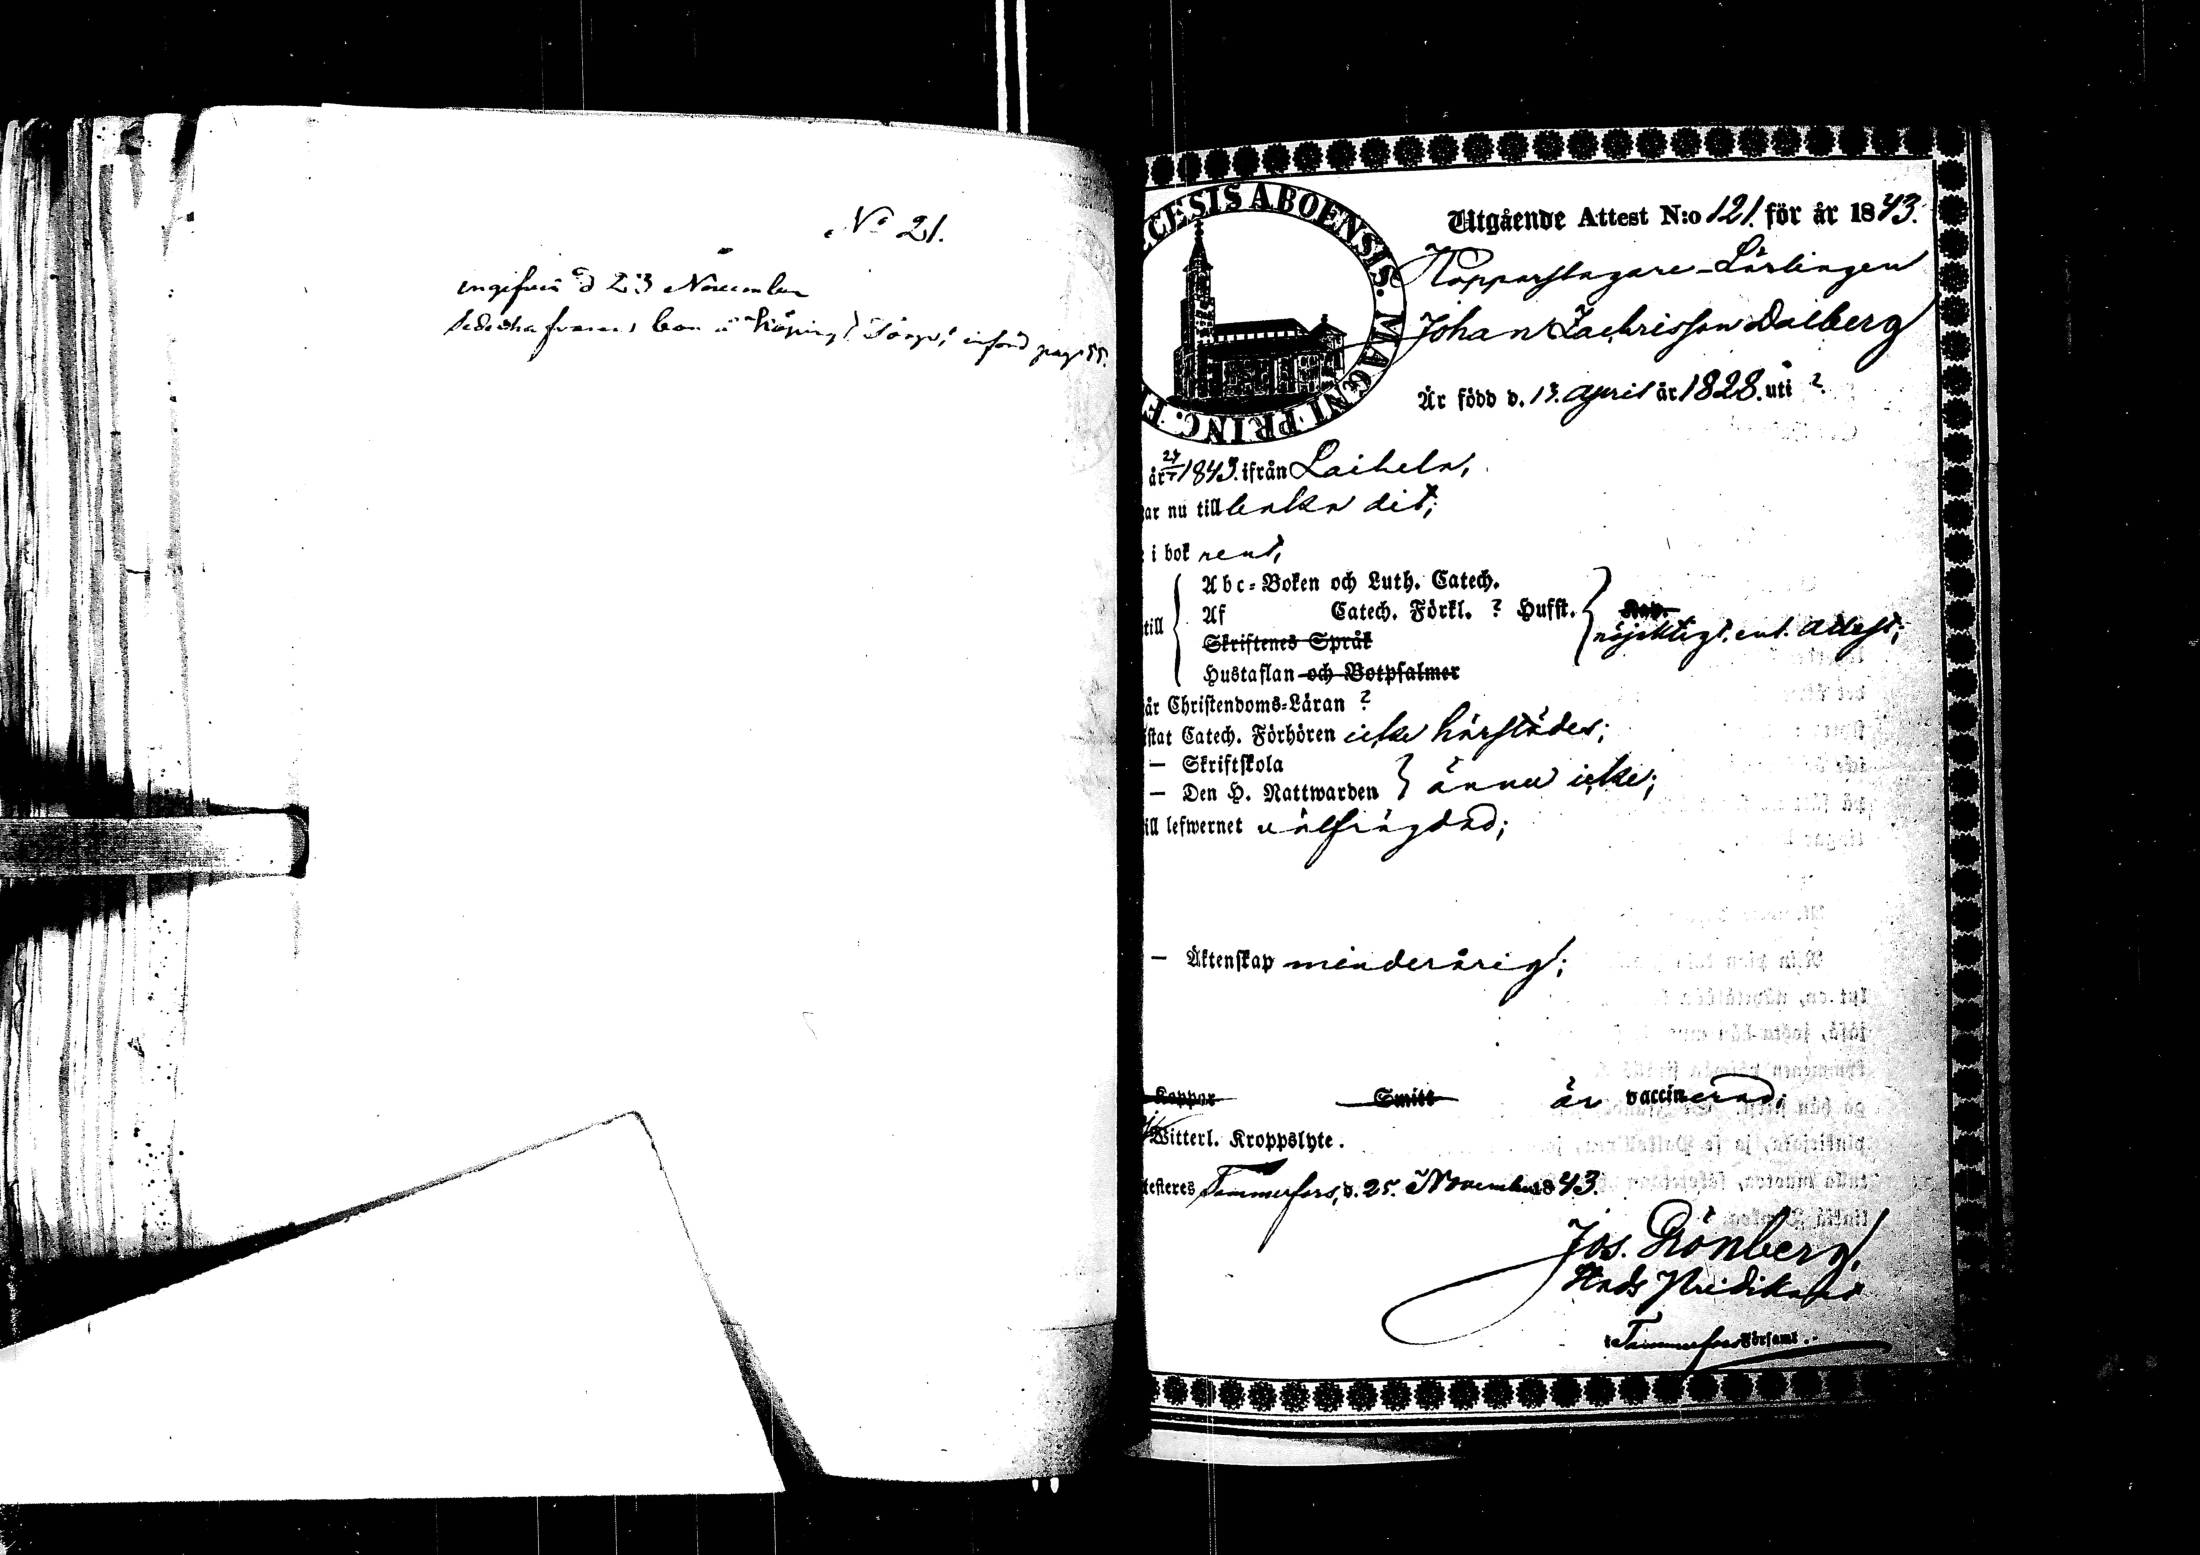 No 21.
d 23 November
införd pag 55.
CESIS ABOENSIS. MAGNI PRINC. F
Utgående Attest N:o 121. för år 1843.
Kopparslagare-Lärlingen
Johan Zachrisson Dalberg
Är född d. 13. April år 1828. uti ?
år 1843. ifrån Laihela,
ar nu till baka dit;
i bok rent,
Abc-Boken och Luth. Catech.
Af Catech. Förkl. ? Hufst.
till
nöjaktigt. enl. Attest;
Skriftenes Språk
Hustaflan och Botpsalmer
år Christendoms-Läran ?
istat Catech. Förhören icke härstädes;
— Skriftskola
— Den H. Nattwarden ännu icke;
ill lefwernet välfrägdad;
— Äktenskap minderårig;
Koppor Smitt är vaccinerad;
Witterl. Kroppslyte.
testeres Tammerfors, d. 25. November 1843.
Jos. Grönberg,
Stads Predikant
i Tammerfors Församl.